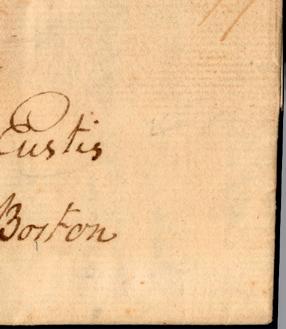 Eustis
Boston